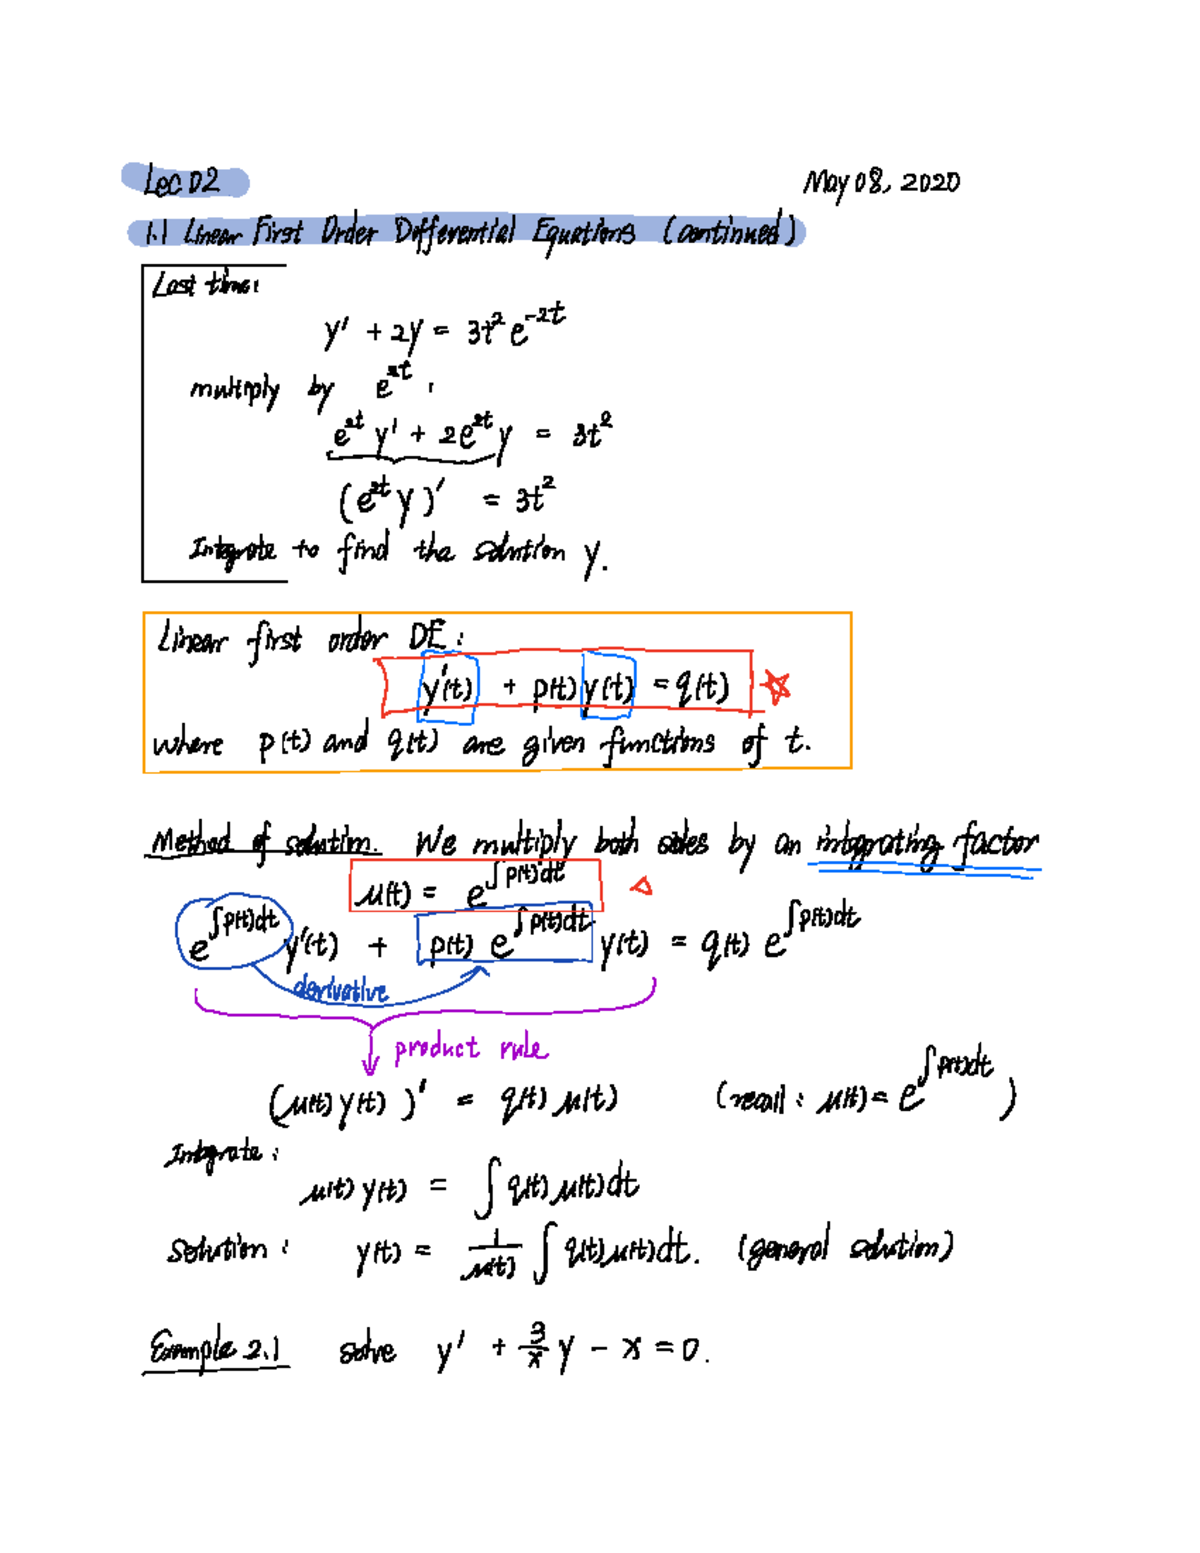 Lec 02
May 08, 2020
1.1 Linear First Order Differential Equations (continued)
Last time:
y' + 2y = 3t² e^{-2t}
multiply by e^{2t} :
e^{2t} y' + 2e^{2t} y = 3t²
(e^{2t} y)' = 3t²
Integrate to find the solution y.
Linear first order DE :
y'(t) + p(t) y(t) = q(t) ☆
where p(t) and q(t) are given functions of t.
Method of solution. We multiply both sides by an integrating factor
μ(t) = e^{∫p(t)dt} △
e^{∫p(t)dt} y'(t) + p(t) e^{∫p(t)dt} y(t) = q(t) e^{∫p(t)dt}
derivative
product rule
(μ(t) y(t))' = q(t) μ(t) (recall : μ(t) = e^{∫p(t)dt})
Integrate :
μ(t) y(t) = ∫ q(t) μ(t) dt
Solution : y(t) = \frac{1}{μ(t)} ∫ q(t) μ(t) dt. (general solution)
Example 2.1 solve y' + \frac{3}{x} y - x = 0.